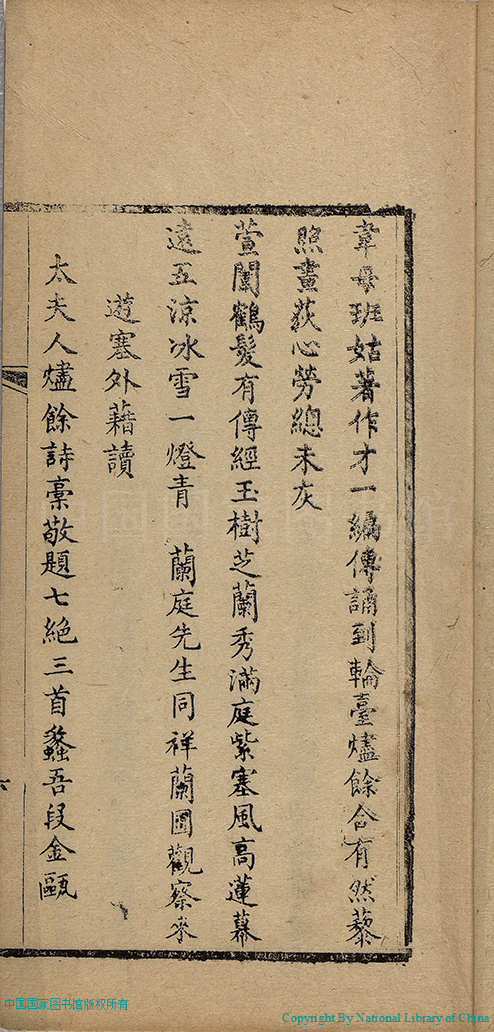 韋母班姑著作才一編傳誦到輪臺燼餘合有然藜
照畫荻心勞總未灰
萱闈鶴髮有傳經玉樹芝蘭秀滿庭紫塞風高蓮幕
遠五涼冰雪一燈青　蘭庭先生同祥蘭圃觀察來
遊塞外藉讀
太夫人燼餘詩稾敬題七絶三首蠡吾段金甌
六
中国国家图书馆版权所有
Copyright By National Library of China